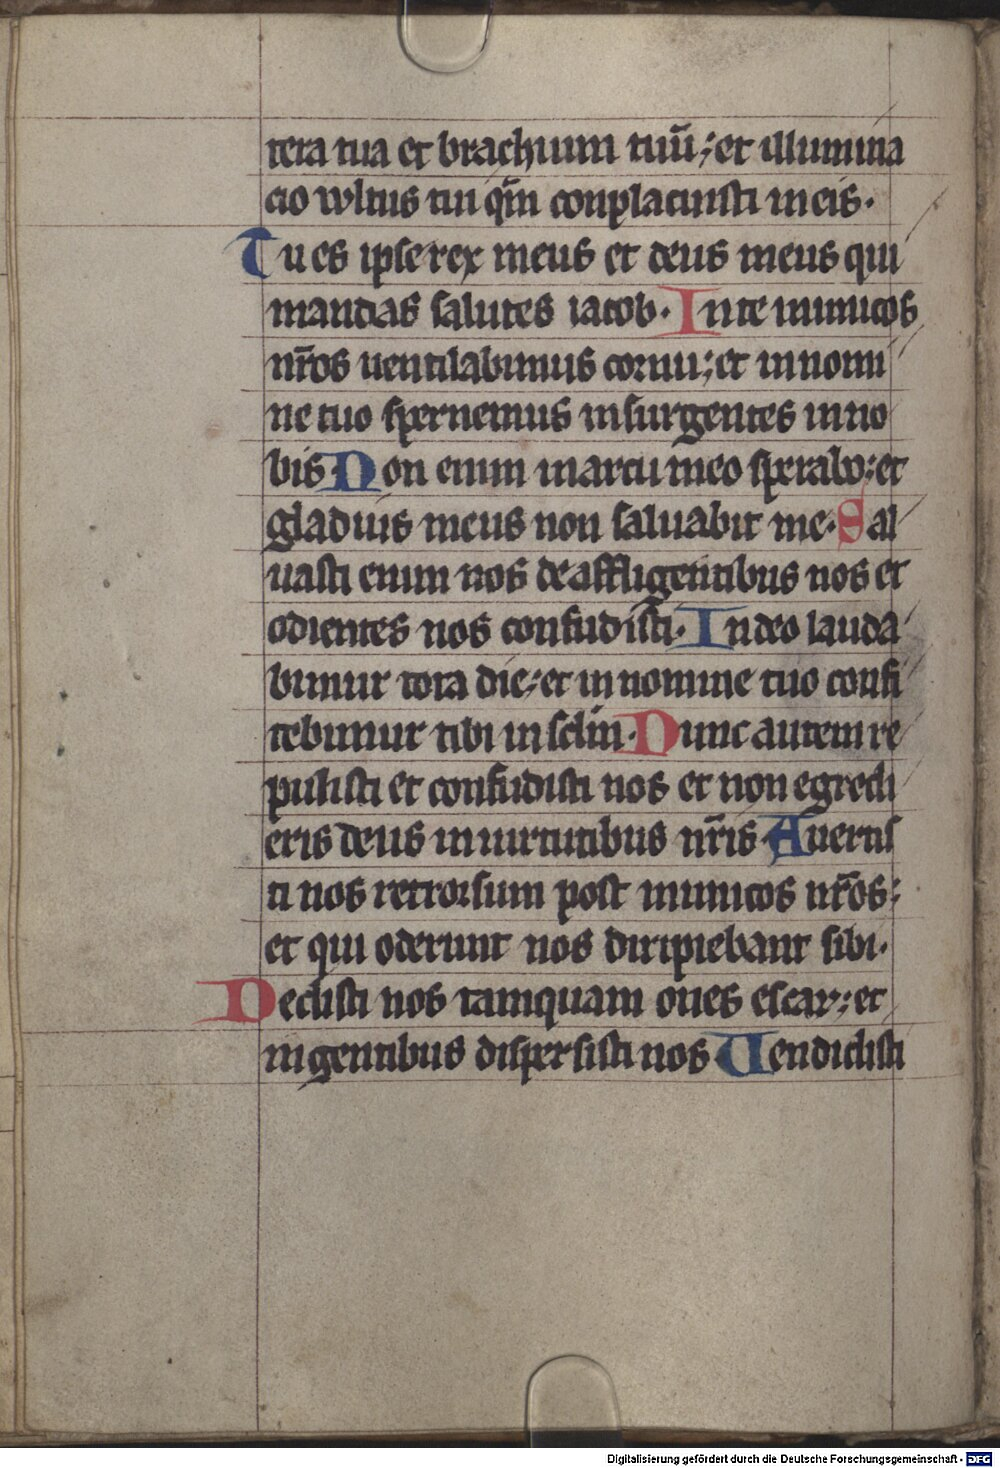 tera tua et brachium tuū; et illumina
cio vvltus tui qm̄ conplacuisti in eis.
Tu es ipse rex meus et deus meus qui
mandas salutes iacob. In te inimicos
nr̄os uentilabimus cornu; et in nomi
ne tuo spernemus insurgentes in no
bis Non enim in arcu meo sperabo; et
gladius meus non saluabit me. Sal
uasti enim nos de affligentibus nos et
odientes nos confudisti. In deo lauda
bimur tota die; et in nomine tuo confi
tebimur tibi in sclm̄. Nunc autem re
pulisti et confudisti nos et non egredi
eris deus in uirtutibus nr̄is Auertis
ti nos retrorsum post inimicos nr̄os;
et qui oderunt nos diripiebant sibi.
Dedisti nos tamquam oues escar; et
in gentibus dispersisti nos Uendidisti
Digitalisierung gefördert durch die Deutsche Forschungsgemeinschaft - DFG